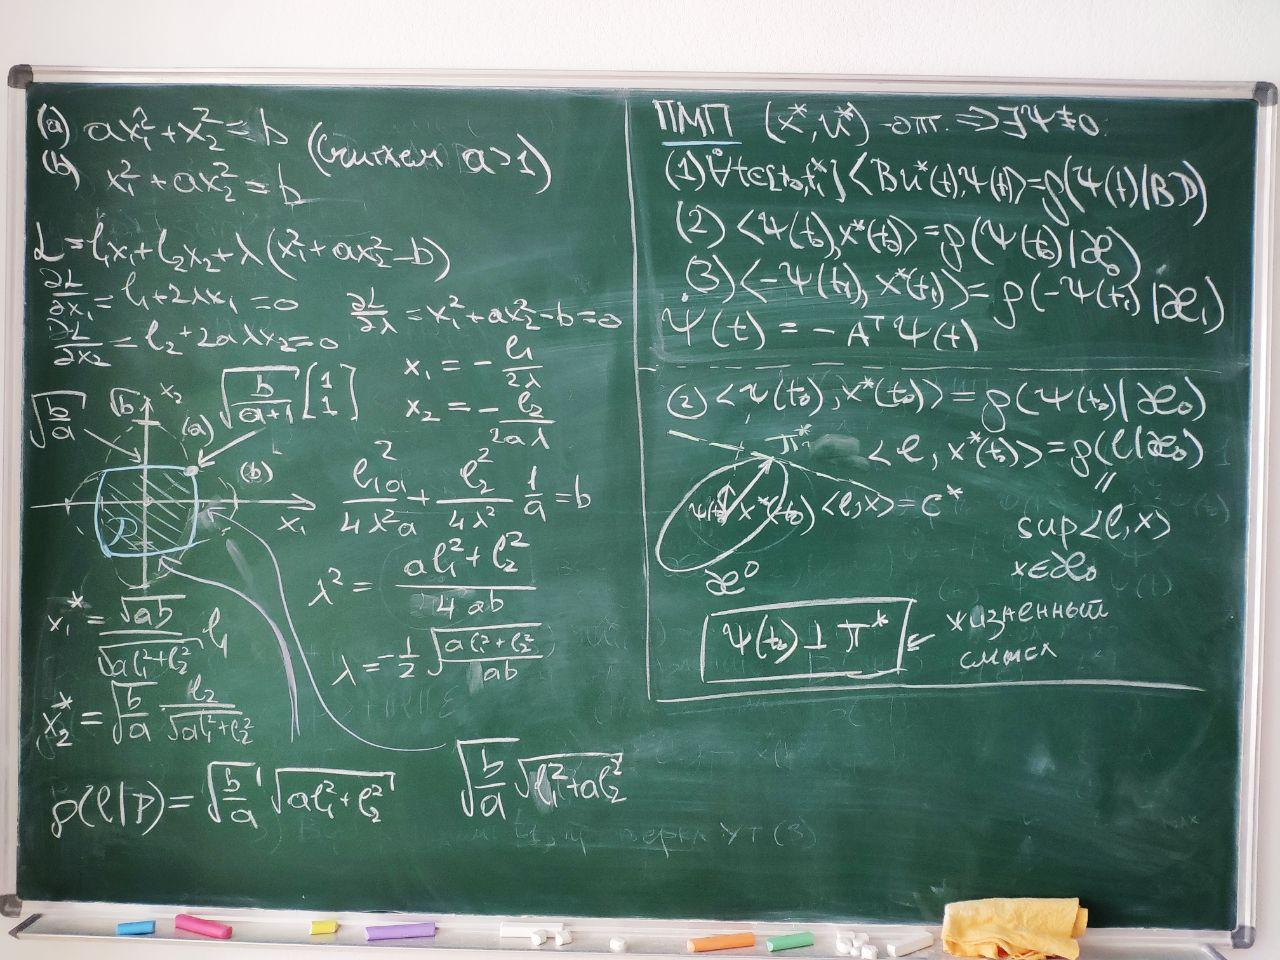 (a) ax₁² + x₂² = b
(b) x₁² + ax₂² = b
(считаем a>1)
L = l₁x₁ + l₂x₂ + λ(x₁² + ax₂² - b)
∂L/∂x₁ = l₁ + 2λx₁ = 0
∂L/∂x₂ = l₂ + 2aλx₂ = 0
∂L/∂λ = x₁² + ax₂² - b = 0
x₁ = - l₁/2λ
x₂ = - l₂/2aλ
√(b/a)
√b
x₂
√(b/(a+1)) [1 1]
(a)
(b)
x₁
P
l₁²a/4λ²a + l₂²/4λ² 1/a = b
λ² = (al₁² + l₂²)/4ab
λ = -1/2 √((al₁² + l₂²)/ab)
x₁* = √(ab)/√(al₁² + l₂²) l₁
x₂* = √(b/a) l₂/√(al₁² + l₂²)
ρ(l|P) = √(b/a) √(al₁² + l₂²)
√(b/a) √(l₁² + al₂²)
ПМП (x*, u*) - опт. ⇒ ∃Ψ ≢ 0
(1) ∀̊t∈[t₀,t₁*] <Bu*(t),Ψ(t)> = ρ(Ψ(t)|BP)
(2) <Ψ(t₀), x*(t₀)> = ρ(Ψ(t₀)|𝒳₀)
(3) <-Ψ(t₁), x*(t₁)> = ρ(-Ψ(t₁)|𝒳₁)
Ψ̇(t) = - AᵀΨ(t)
(2) <Ψ(t₀), x*(t₀)> = ρ(Ψ(t₀)|𝒳₀)
π*
<l, x*(t₀)> = ρ(l|𝒳₀)
Ψ(t₀)
x*(t₀)
<l,x> = c*
𝒳⁰
"
sup <l,x>
x∈𝒳₀
Ψ(t₀) ⊥ π*
⇐ жизненный
смысл